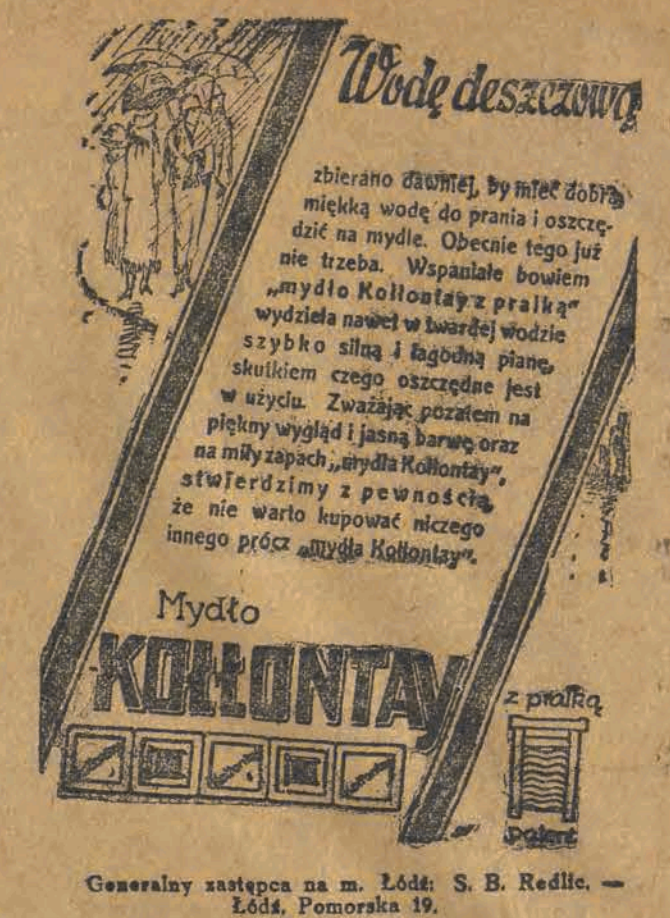 Wodę deszczową
zbierano dawniej, by mieć dobrą
miękką wodę do prania i oszczę-
dzić na mydle. Obecnie tego już
nie trzeba. Wspaniałe bowiem
„mydło Kołłontay z pralką”
wydziela nawet w twardej wodzie
szybko silną i łagodną pianę,
skutkiem czego oszczędne jest
w użyciu. Zważając pozatem na
piękny wygląd i jasną barwę oraz
na miły zapach „mydła Kołłontay”,
stwierdzimy z pewnością,
że nie warto kupować niczego
innego prócz „mydła Kołłontay”.
Mydło
KOŁŁONTAY
z pralką
patent
Generalny zastępca na m. Łódź: S. B. Redlic. —
Łódź, Pomorska 19.